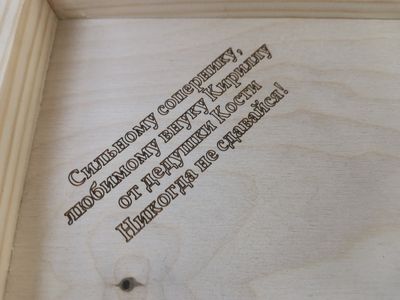 Сильному сопернику,
любимому внуку Кириллу
от дедушки Кости
Никогда не сдавайся!